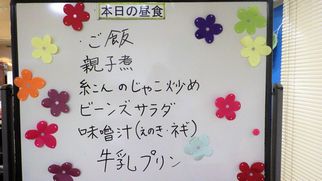 本日の昼食
・ご飯
親子煮
糸こんのじゃこ炒め
ビーンズサラダ
味噌汁(えのき・ネギ)
牛乳プリン